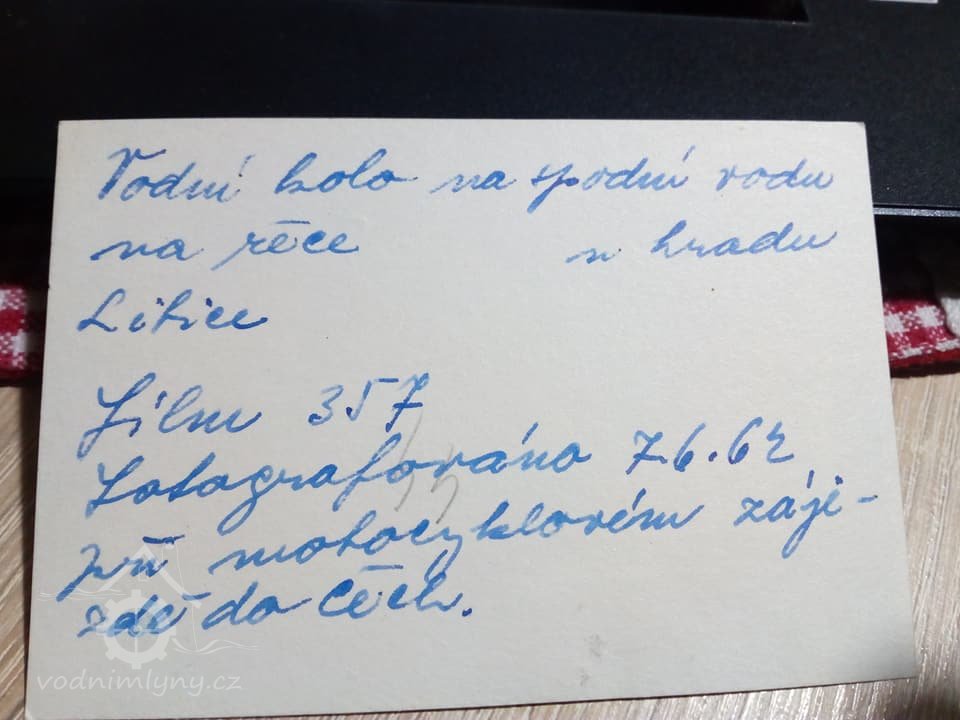 Vodní kolo na spodní vodu
na řěce u hradu
Litice
Film 357
Fotografováno 7.6.62
při motocyklovém záje-
zdě do Čěch.
vodnimlyny.cz